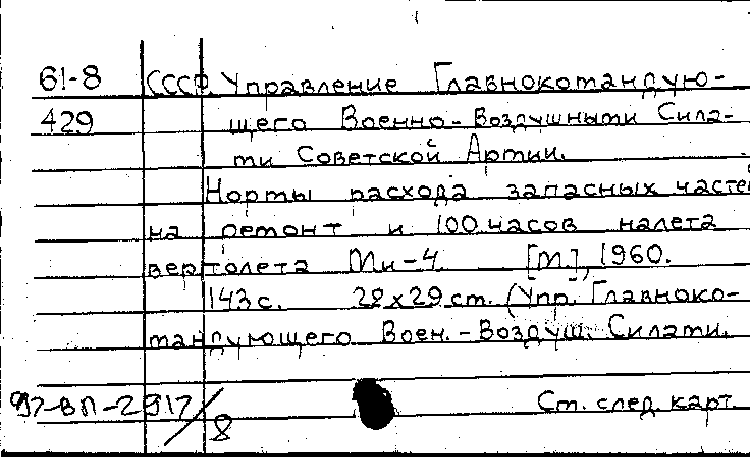 61-8 СССР. Управление Главнокомандую-
429 щего Военно-Воздушными Сила-
ми Советской Армии.
Нормы расхода запасных частей
на ремонт и 100 часов налета
вертолета Ми-4 [М.], 1960.
143 с. 22х29 см. (Упр. Главноко-
мандующего Воен.-Воздуш. Силами.
97-ВП-2917/8 См. след. карт.